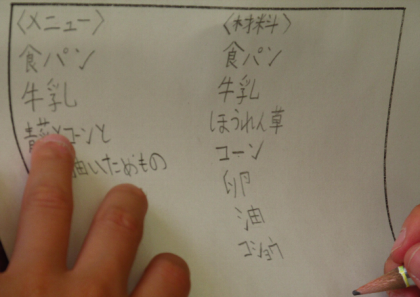 〈メニュー〉
食パン
牛乳
青菜とコーンと
油いためもの
〈材料〉
食パン
牛乳
ほうれん草
コーン
卵
油
コショウ